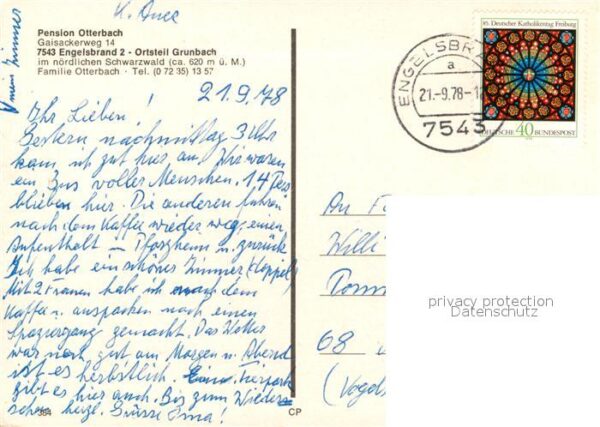 Pension Otterbach
Gaisackerweg 14
7543 Engelsbrand 2 - Ortsteil Grunbach
im nördlichen Schwarzwald (ca. 620 m ü. M.)
Familie Otterbach · Tel. (0 72 35) 13 57
mein Zimmer
21.9.78
Ihr Lieben!
Gestern nachmittag 3 Uhr
kam ich gut hier an. Wir waren
ein Bus voller Menschen. 14 Pers
blieben hier. Die anderen fuhren
nach dem Kaffee wieder weg, einen
Aufenthalt – Pforzheim u. zurück
Ich habe ein schönes Zimmer
Mit 2 Frauen habe ich nach dem
Kaffee u. auspacken noch einen
Spaziergang gemacht. Das Wetter
war noch gut am Morgen u. Abend
ist es herbstlich. Tierpark
gibt es hier auch. Bis zum Wieder
sehn herzl. Grüsse Oma!
384
CP
85. Deutscher Katholikentag Freiburg
DEUTSCHE 40 BUNDESPOST
ENGELSBRA
a
21.-9.78-1
7543
An Fa
Willi
68
(Vogels
privacy protection
Datenschutz